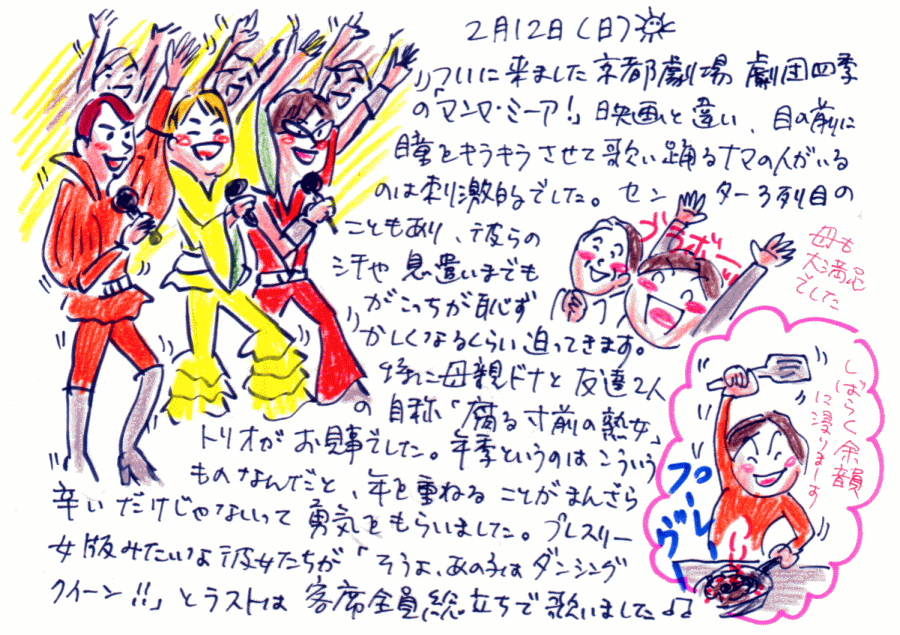 2月12日(日)
ついに来ました京都劇場 劇団四季
の「マンマ・ミーア!」映画と違い、目の前に
瞳をキラキラさせて歌い踊るナマの人がいる
のは刺激的でした。センター3列目の
こともあり、彼らの
汗や息遣いまでも
がこっちが恥ず
かしくなるくらい迫ってきます。
特に母親ドナと友達2人
の自称「腐る寸前の熟女」
トリオがお見事でした。年季というのはこういう
ものなんだと、年を重ねることがまんざら
辛いだけじゃないって勇気をもらいました。プレスリー
女版みたいな彼女たちが「そうよ、あの子はダンシング
クイーン!!」とラストは客席全員総立ちで歌いました♫
ブラボー
母も
大満足
でした
しばらく余韻
に浸りまーす